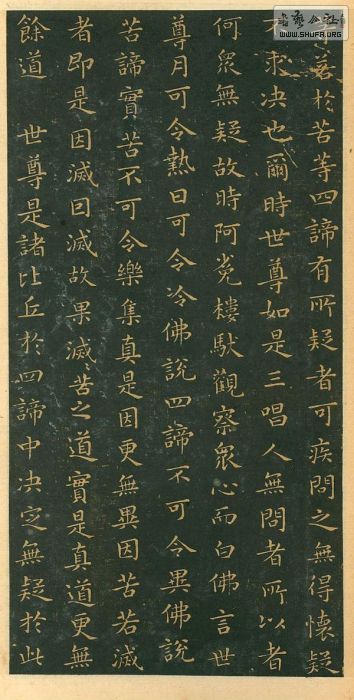 若於苦等四諦有所疑者可疾問之無得懷疑
不求决也爾時世尊如是三唱人無問者所以者
何衆無疑故時阿㝹樓馱觀察衆心而白佛言世
尊月可令熱日可令冷佛說四諦不可令異佛說
苦諦實苦不可令樂集真是因更無異因苦若滅
者即是因滅因滅故果滅〻苦之道實是真道更無
餘道 世尊是諸比丘於四諦中决定無疑於此
WWW.SHUFA.ORG